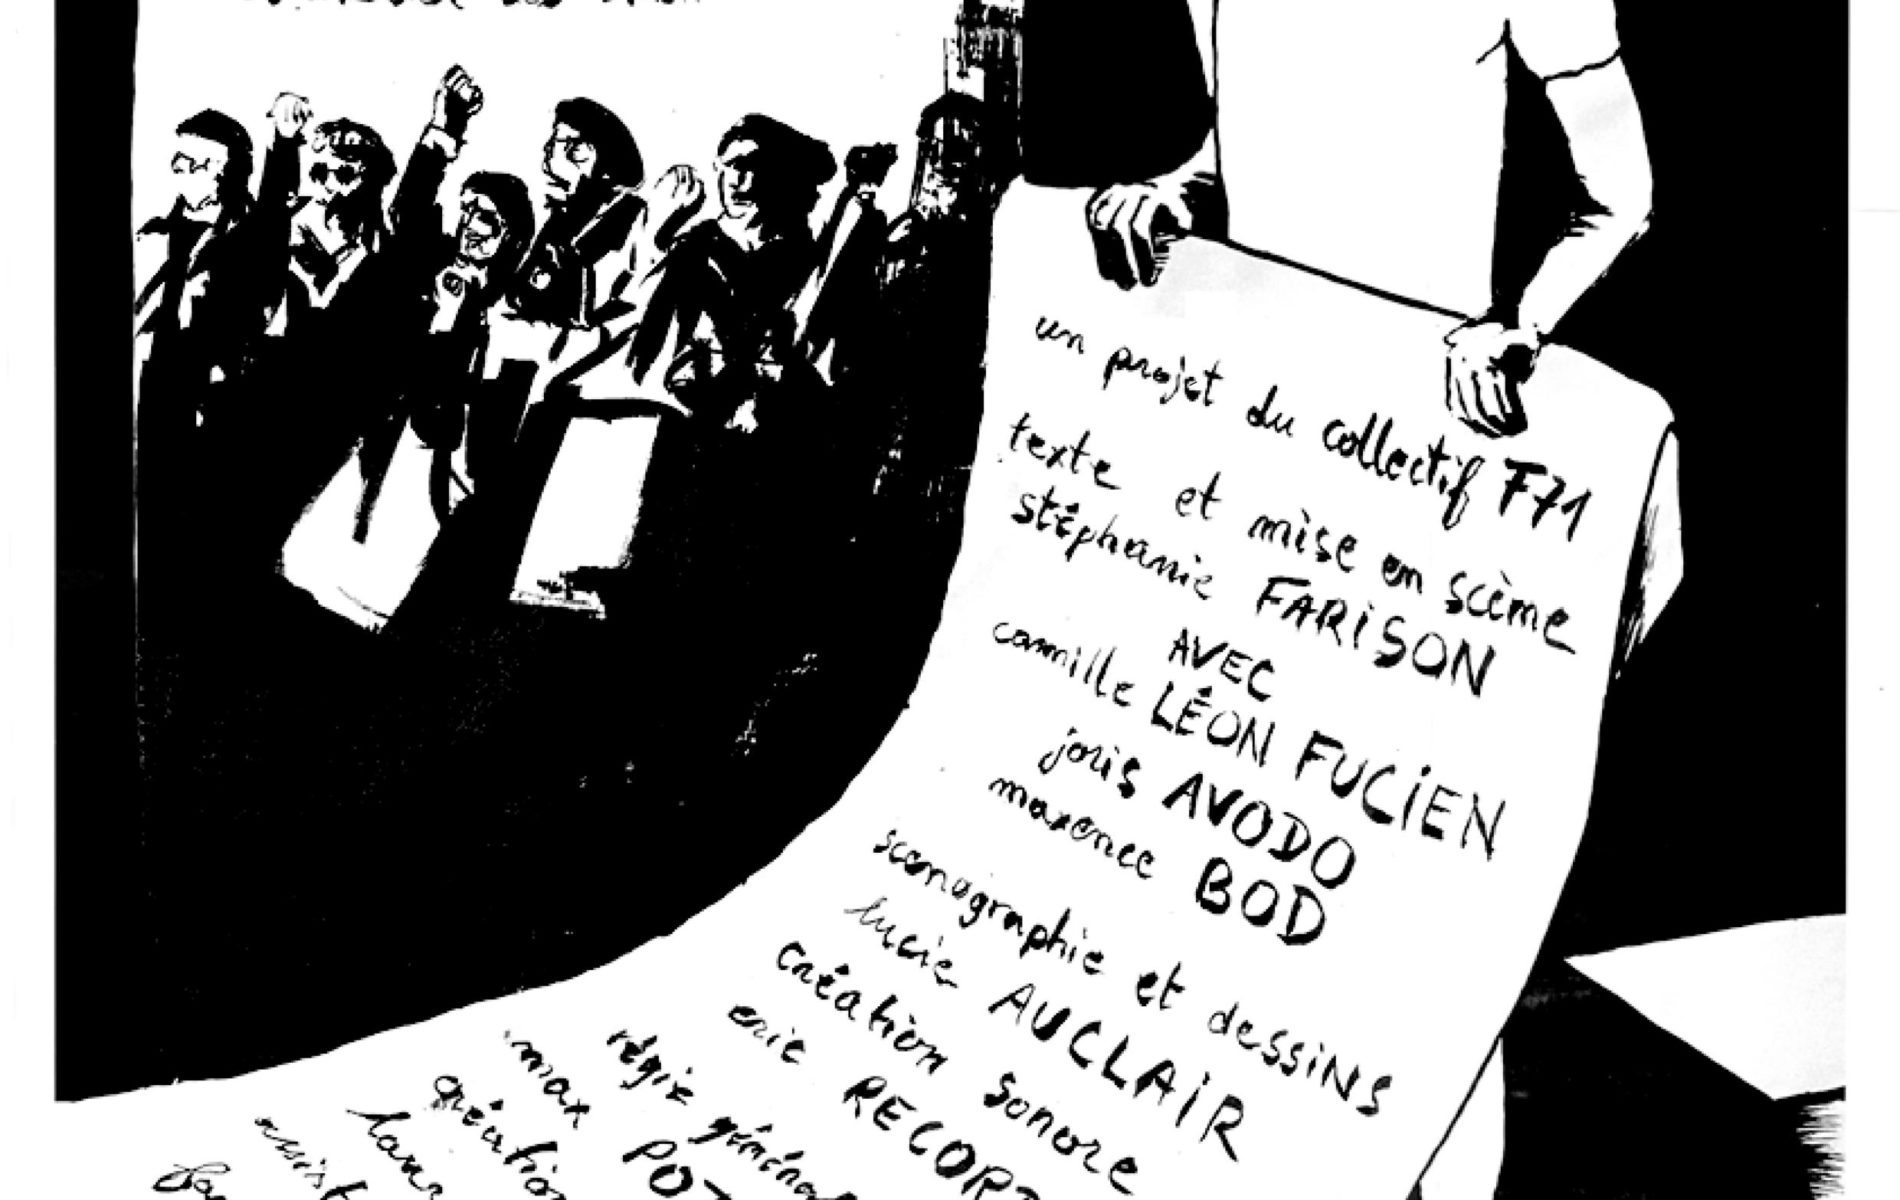 un projet du collectif F71
texte et mise en scème
stéphanie FARiSON
AVEC
camille LÉON FUCiEN
joris AVODO
maxence BOD
scenographie et dessiNS
lucie AUCLAiR
création sonore
eric RECORD
régie général
max POT
création